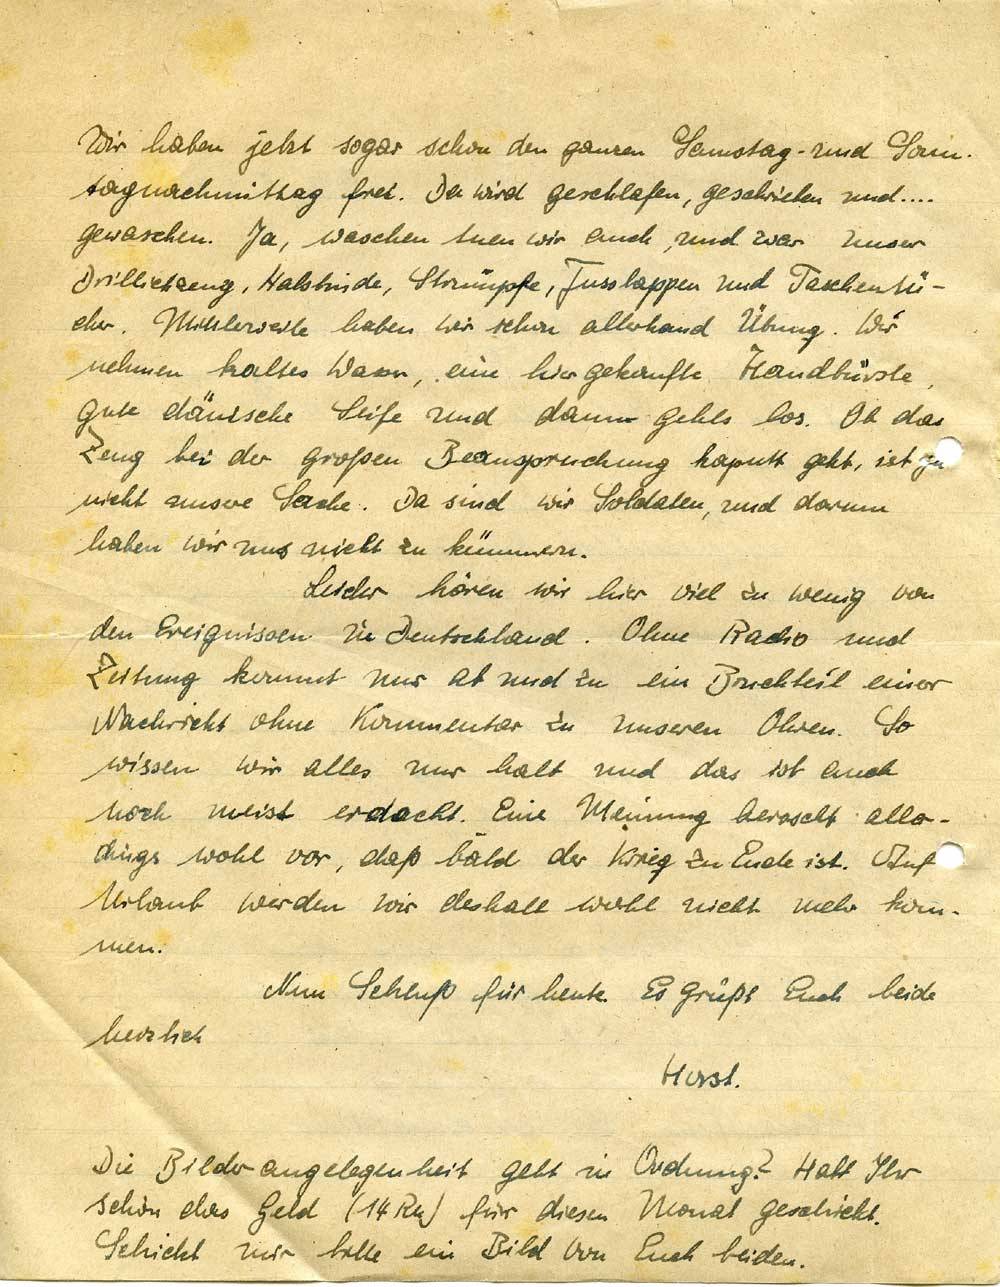 Wir haben jetzt sogar schon den ganzen Samstag- und Sonn-
tagnachmittag frei. Da wird geschlafen, geschrieben und....
gewaschen. Ja, waschen tuen wir auch, und zwar unser
Drillichzeug, Halsbinde, Strümpfe, Fusslappen und Taschentü-
cher. Mittlerweile haben wir schon allerhand Übung. Wir
nehmen kaltes Wasser, eine hier gekaufte Handbürste,
gute dänische Seife und dann gehts los. Ob das
Zeug bei der großen Beanspruchung kaputt geht, ist ja
nicht unsere Sache. Da sind wir Soldaten, und darum
haben wir uns nicht zu kümmern.
Leider hören wir hier viel zu wenig von
den Ereignissen in Deutschland. Ohne Radio und
Zeitung kommt nur ab und zu ein Bruchteil einer
Nachricht ohne Kommentar zu unseren Ohren. So
wissen wir alles nur halb und das ist auch
noch meist erdacht. Eine Meinung herrscht aller-
dings wohl vor, daß bald der Krieg zu Ende ist. Auf
Urlaub werden wir deshalb wohl nicht mehr kom-
men.
Nun Schluß für heute. Es grüßt Euch beide
herzlich
Horst.
Die Bilderangelegenheit geht in Ordnung? Habt Ihr
schon das Geld (14 RM) für diesen Monat geschickt.
Schickt mir bitte ein Bild von Euch beiden.